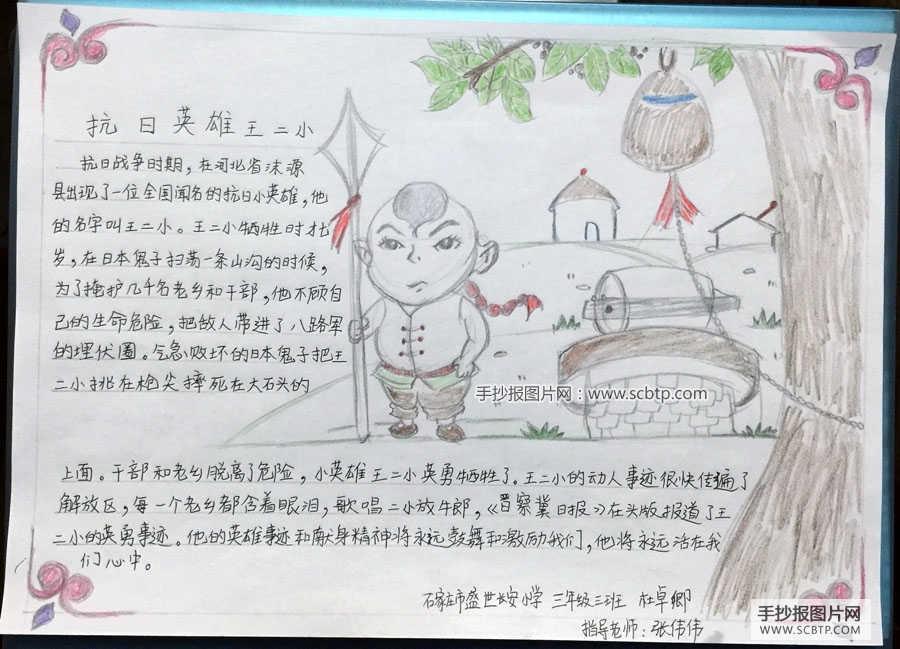 抗日英雄王二小
抗日战争时期，在河北省涞源
县出现了一位全国闻名的抗日小英雄，他
的名字叫王二小。王二小牺牲时才
岁，在日本鬼子扫荡一条山沟的时候，
为了掩护几千名老乡和干部，他不顾自
己的生命危险，把敌人带进了八路军
的埋伏圈。气急败坏的日本鬼子把王
二小挑在枪尖摔死在大石头的
手抄报图片网：www.scbtp.com
上面。干部和老乡脱离了危险，小英雄王二小英勇牺牲了。王二小的动人事迹很快传遍了
解放区，每一个老乡都含着眼泪，歌唱二小放牛郎，《晋察冀日报》在头版报道了王
二小的英勇事迹。他的英雄事迹和献身精神将永远鼓舞和激励我们，他将永远活在我
们心中。
石家庄市盛世长安小学 三年级三班 杜卓卿
指导老师：张伟伟
手抄报图片网
WWW.SCBTP.COM